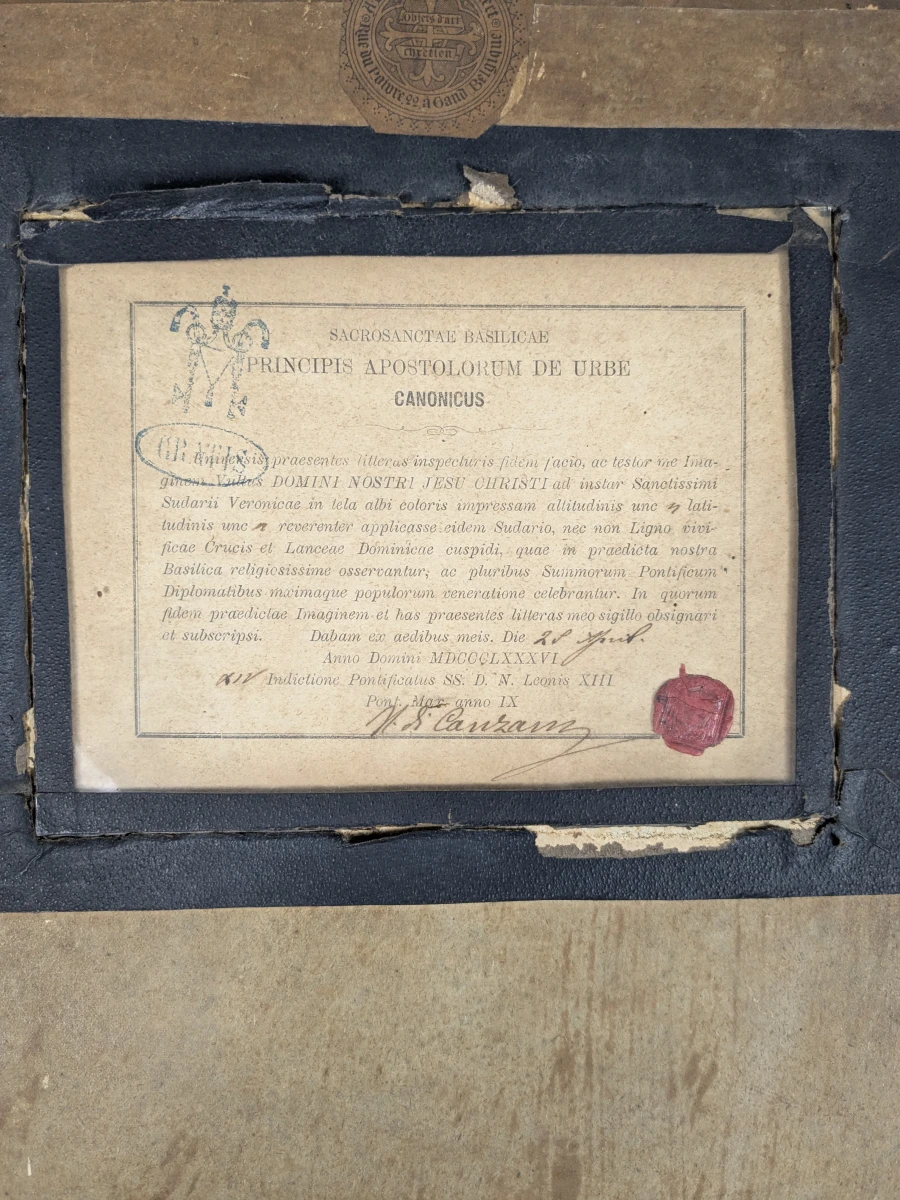 Objets d'art
chrétien
Rue du Poivre 22 à Gand Belgique
SACROSANCTAE BASILICAE
PRINCIPIS APOSTOLORUM DE URBE
CANONICUS
GRATIS
praesentes litteras inspecturis fidem facio, ac testor me Ima-
ginem Vultus DOMINI NOSTRI JESU CHRISTI ad instar Sanctissimi
Sudarii Veronicae in tela albi coloris impressam altitudinis unc lati-
tudinis unc reverenter applicasse eidem Sudario, nec non Ligno vivi-
ficae Crucis et Lanceae Dominicae cuspidi, quae in praedicta nostra
Basilica religiosissime osservantur; ac pluribus Summorum Pontificum
Diplomatibus maximaque populorum veneratione celebrantur. In quorum
fidem praedictae Imaginem et has praesentes litteras meo sigillo obsignari
et subscripsi. Dabam ex aedibus meis. Die 28
Anno Domini MDCCCLXXXVI
XIV Indictione Pontificatus SS. D. N. Leonis XIII
Pont. Max. anno IX